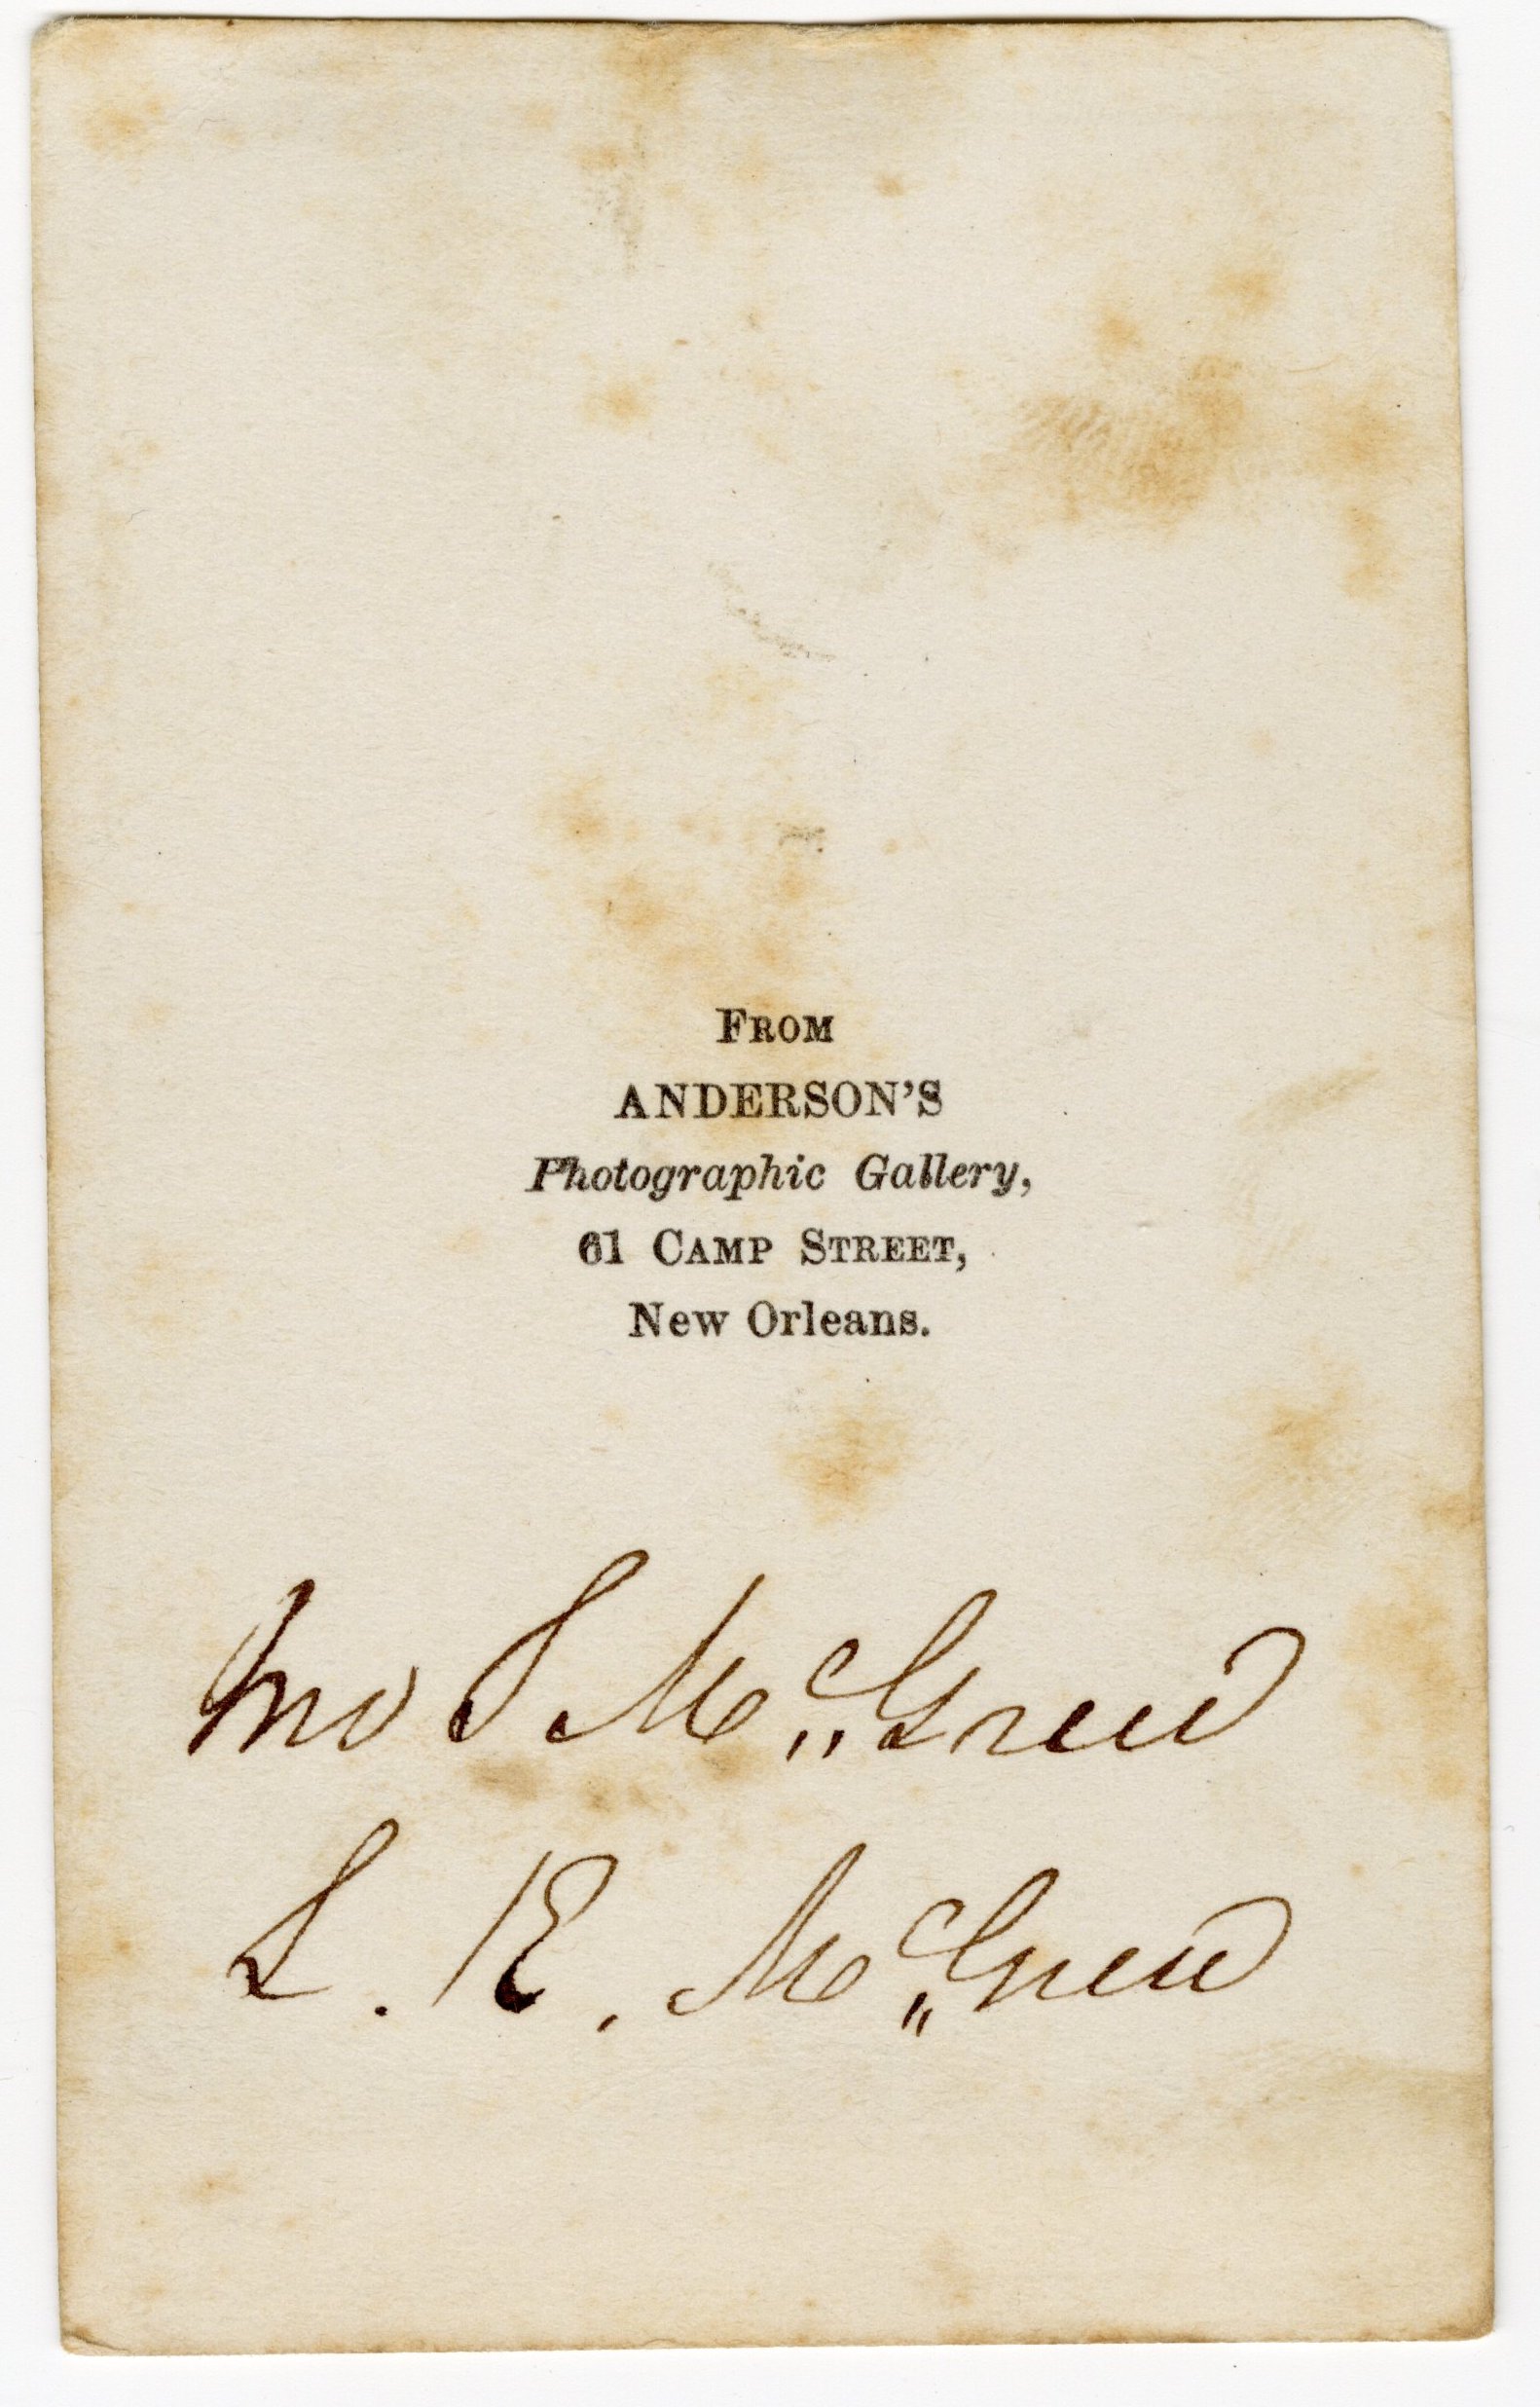 FROM
ANDERSON'S
Photographic Gallery,
61 CAMP STREET,
New Orleans.
Jno S McGrew
L. E. McGrew